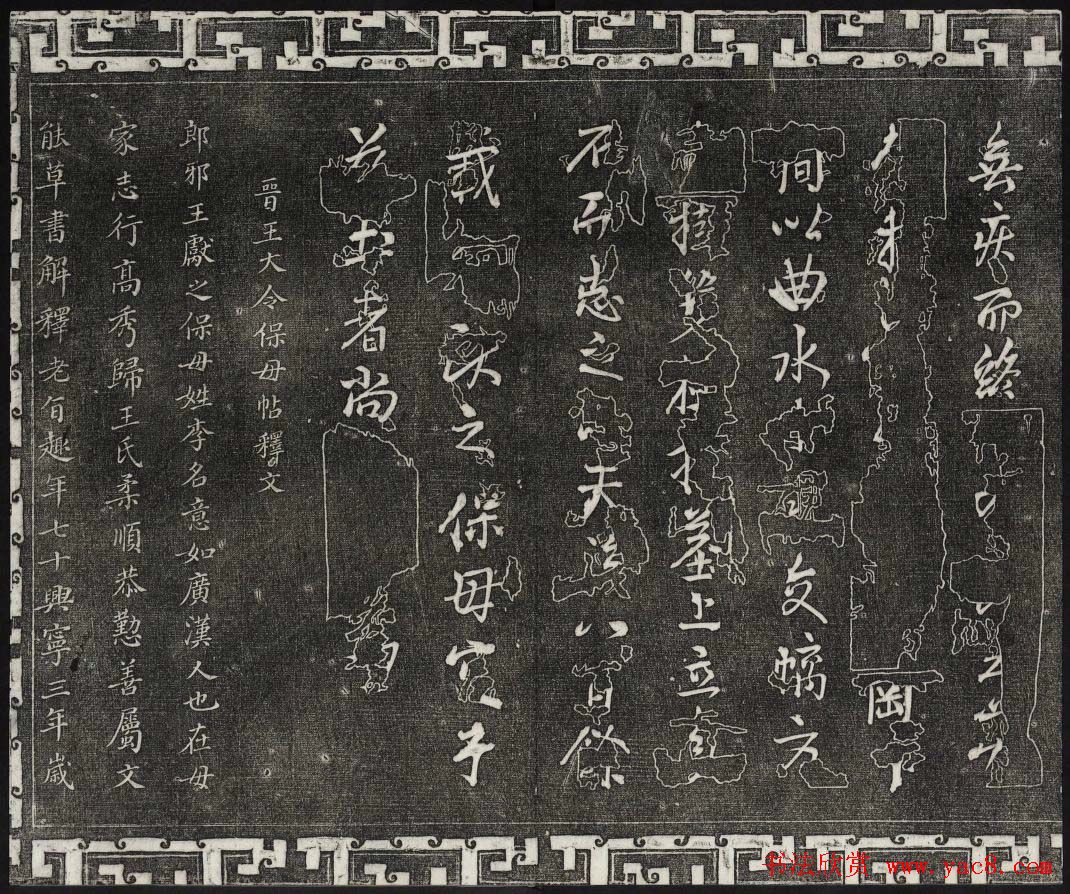 無疾而終
岡下
間以曲水 交螭方
墓上立貞
石而志之 夫 八百餘
載 獻之保母宮于
茲土者尚
晉王大令保母帖釋文
郎邪王獻之保母姓李名意如廣漢人也在母
家志行高秀歸王氏柔順恭懃善屬文
能草書解釋老旨趣年七十興寧三年歲
书法欣赏 www.yac8.com